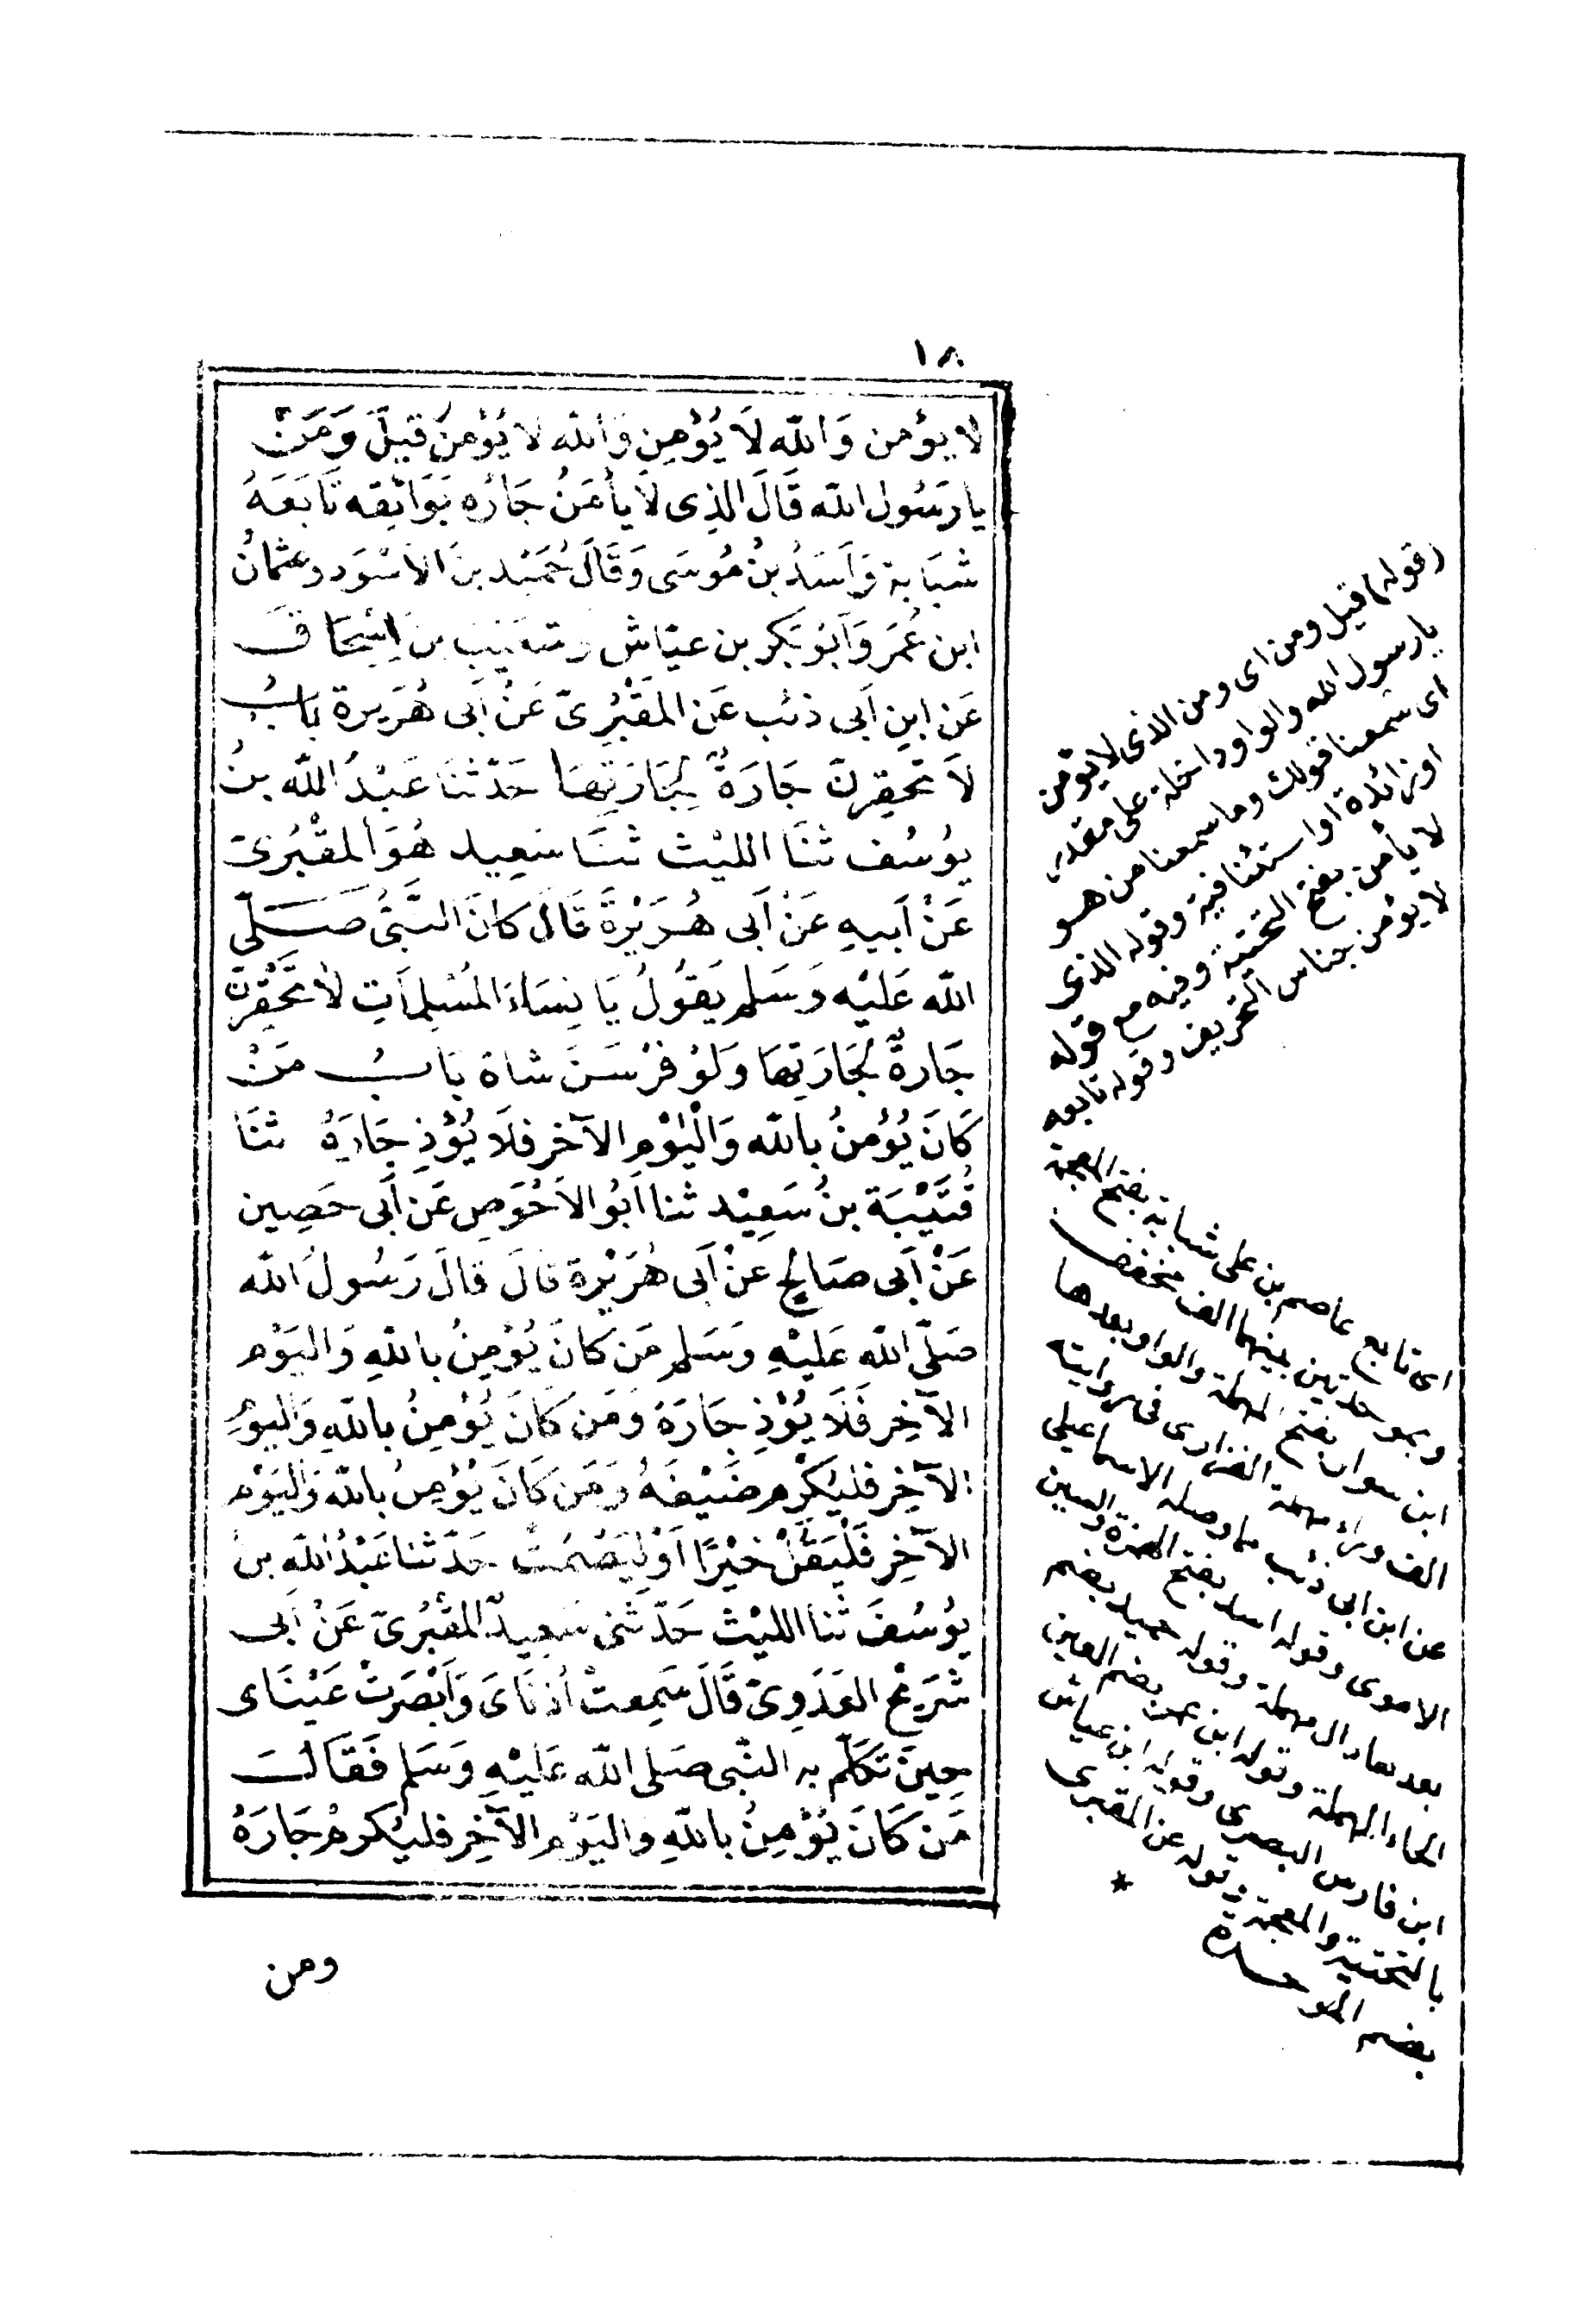 ١٨
لا يؤمن وَاللّه لَا يُؤْمِن وَاللّه لَا يُؤْمِنُ قِيلَ وَمَنْ
يا رَسُول اللّه قَالَ الذِى لَا يأمَنُ جَارُه بَوَائِقه تَابَعَهُ
شَبَابة وَأسَدُ بنُ مُوسَى وَقَالَ حُمَيْد بن الأَسْوَد وعثمانُ
ابن عُمَرَ وَأبُو بَكر بن عيّاش وشعَيب بن إسْحَاقَ
عَن ابن أبى ذئب عَن المَقْبُرِىّ عَنْ أبى هُرَيرة بابُ
لَا تَحقِرنّ جَارَةٌ لِجَارَتِهَا حَدّثنَا عَبْدُ اللّه بنُ
يوُسُف ثنَا الليْث ثنَا سَعِيد هُوَ المقْبُرىّ
عَنْ أَبيهِ عَنْ أبى هُرَيْرَةَ قَالَ كانَ النَّبىُّ صَلّى
اللّه عَليْه وَسَلم يَقُولُ يَا نِسَاءَ المُسْلِمَاتِ لَا تَحْقِرَنّ
جَارةٌ لجَارَتِهَا وَلَوْ فرْسَنَ شاة بَابُ مَنْ
كَانَ يُؤمنُ باللّه وَالْيَوْمِ الآخر فلَا يُؤْذِ جَارَهُ ثنَا
قُتَيْبَة بنُ سَعِيْد ثنا أبُو الأَحْوَص عَن أَبى حَصِين
عَنْ أَبى صَالحٍ عنْ أَبى هُرَيْرة قالَ قالَ رَسُولُ اللّه
صَلّى اللّه عَليْهِ وَسَلم مَن كَانَ يُؤْمِنُ باللّهِ وَاليَوْم
الآخِر فَلَا يُؤْذِ جَارَهُ وَمَن كَانَ يُؤمِنُ باللّهِ وَاليوْمِ
الآخِر فليُكْرِم ضَيْفَهُ وَمَن كَانَ يُؤمِنُ باللّه وَاليَوْم
الآخِر فَلْيَقُلْ خيْرًا أَوْ لِيَصْمُتْ حَدّثنا عَبْدُ اللّه بن
يوُسُفَ ثنا الليْث حَدّثنى سَعِيدٌ المَقبُرىّ عَنْ أبى
شُرَيْح العَدَوِىّ قَالَ سَمِعتْ أُذنَاىَ وَأَبْصَرَتْ عَيْنَاى
حِينَ تَكَلّم به النّبى صَلى اللّه عَليْهِ وَسَلم فَقَالَ
مَن كَانَ يُؤْمِنُ باللّهِ واليَوْم الآخِر فليُكرمْ جَارَهُ
ومن
(قوله) قيل ومن اى ومن الذى لا يؤمن
يا رسول الله والواو داخلة على مقدر
اى سمعنا قولك وما سمعنا من هو
او زائدة او استئنافية وقوله الذى
لا يأمن بفتح التحتية وفيه مع قوله
لا يؤمن جناس التحريف وقوله تابعه
اى تابع عاصم بن على شبابة بفتح المعجمة
وبموحدتين بينهما الف مخففا
ابن سوار بفتح المهملة والواو بعدها
الف وراء مهملة الفزارى فى روايته
عن ابن ابى ذئب مما وصله الاسماعيلى
الاموى وقوله اسد بفتح الهمزة والسين
بعدها دال مهملة وقوله حميد بضم
الحاء المهملة وقوله ابن عمر بضم العين
ابن فارس البصرى وقوله ابن عياش
بالتحتية والمعجمة وقوله عن المقبرى
بضم الموحدة *